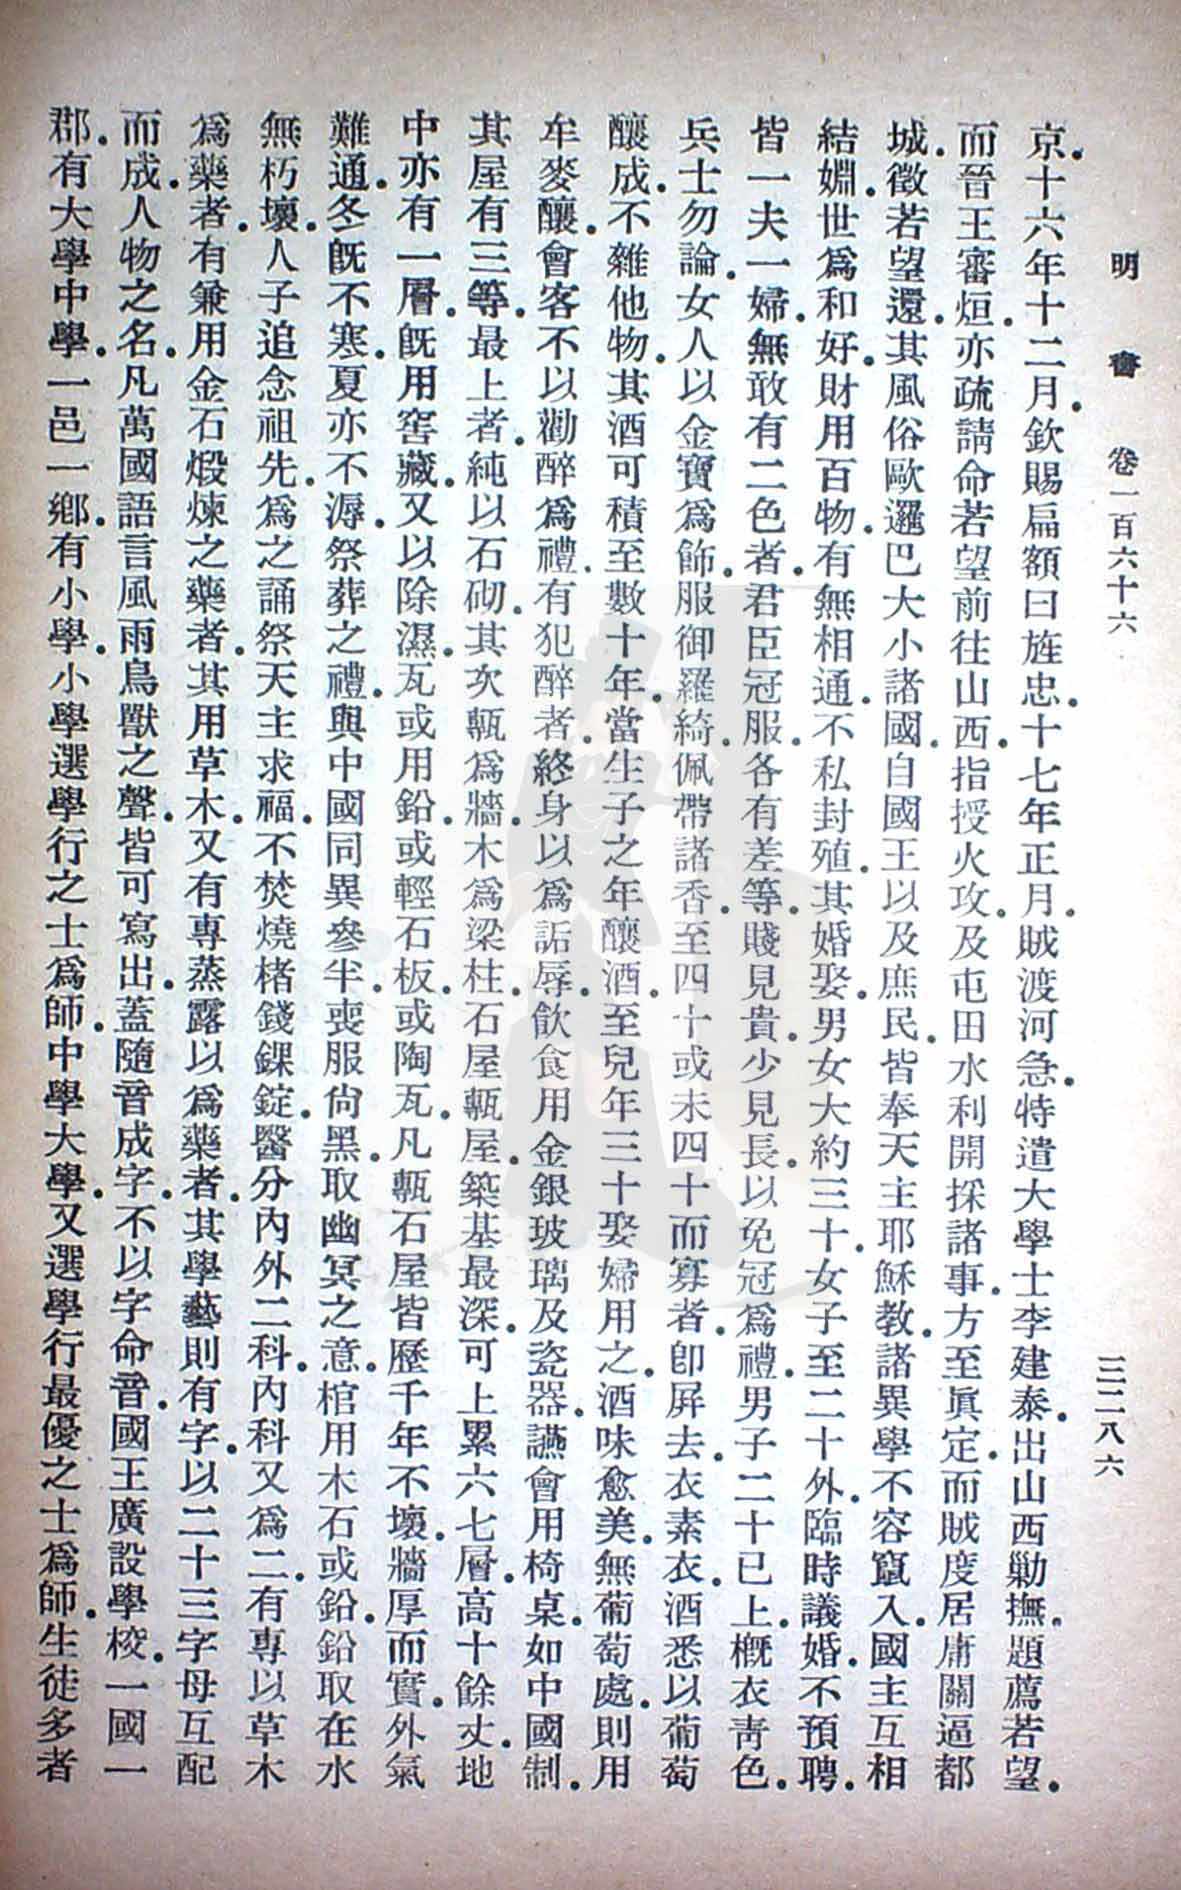 明書 卷一百六十六 三二八六
京．十六年十二月．欽賜扁額曰旌忠．十七年正月．賊渡河急．特遣大學士李建泰．出山西勦撫．題薦若望．
而晉王審烜．亦疏請命若望前往山西．指授火攻．及屯田水利開採諸事．方至眞定．而賊度居庸關逼都
城．徵若望還．其風俗歐邏巴大小諸國．自國王以及庶民．皆奉天主耶穌教．諸異學不容竄入．國主互相
結婣．世爲和好．財用百物．有無相通．不私封殖．其婚娶．男女大約三十．女子至二十外．臨時議婚．不預聘．
皆一夫一婦．無敢有二色者．君臣冠服．各有差等．賤見貴．少見長．以免冠爲禮．男子二十已上．槪衣靑色．
兵士勿論．女人以金寶爲飾．服御羅綺．佩帶諸香．至四十或未四十而寡者．卽屛去．衣素衣．酒悉以葡萄
釀成．不雜他物．其酒可積至數十年．當生子之年釀酒．至兒年三十娶婦用之．酒味愈美．無葡萄處．則用
牟麥釀．會客不以勸醉爲禮．有犯醉者．終身以爲詬辱．飮食用金銀玻璃及瓷器．讌會用椅桌．如中國制．
其屋有三等．最上者．純以石砌．其次甎爲牆．木爲梁柱．石屋甎屋．築基最深．可上累六七層．高十餘丈．地
中亦有一層．旣用窖藏．又以除濕．瓦或用鉛．或輕石板．或陶瓦．凡甎石屋皆歷千年不壞．牆厚而實．外氣
難通．冬旣不寒．夏亦不溽．祭葬之禮．與中國同異參半．喪服尙黑．取幽冥之意．棺用木石或鉛．鉛取在水
無朽壞．人子追念祖先．爲之誦祭天主求福．不焚燒楮錢錁錠．醫分內外二科．內科又爲二．有專以草木
爲藥者．有兼用金石煅煉之藥者．其用草木．又有專蒸露以爲藥者．其學藝則有字．以二十三字母互配
而成．人物之名．凡萬國語言風雨鳥獸之聲．皆可寫出．蓋隨音成字．不以字命音．國王廣設學校．一國一
郡．有大學中學．一邑一鄉．有小學．小學選學行之士爲師．中學大學．又選學行最優之士爲師．生徒多者